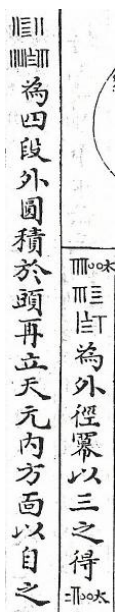 太
為外徑冪以三之得
太
為四段外圓積於頭再立天元內方面以自之